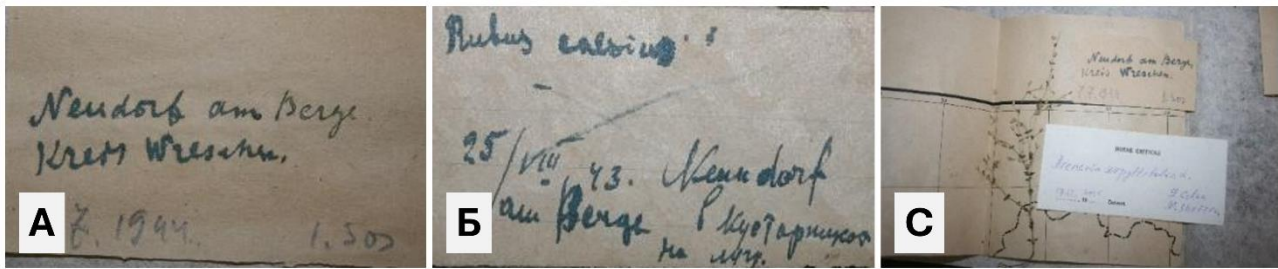 Neudorf am Berge.
Kreis Wreschen.
7. 1944.
1. Sos
А
Rubus caesius
25/VIII, 43. Neundorf
am Berge В кустарниках
на луг.
Б
Neudorf am Berge,
Kreis Wreschen.
NOTAE CRITICAE
Arenaria serpyllifolia L.
С